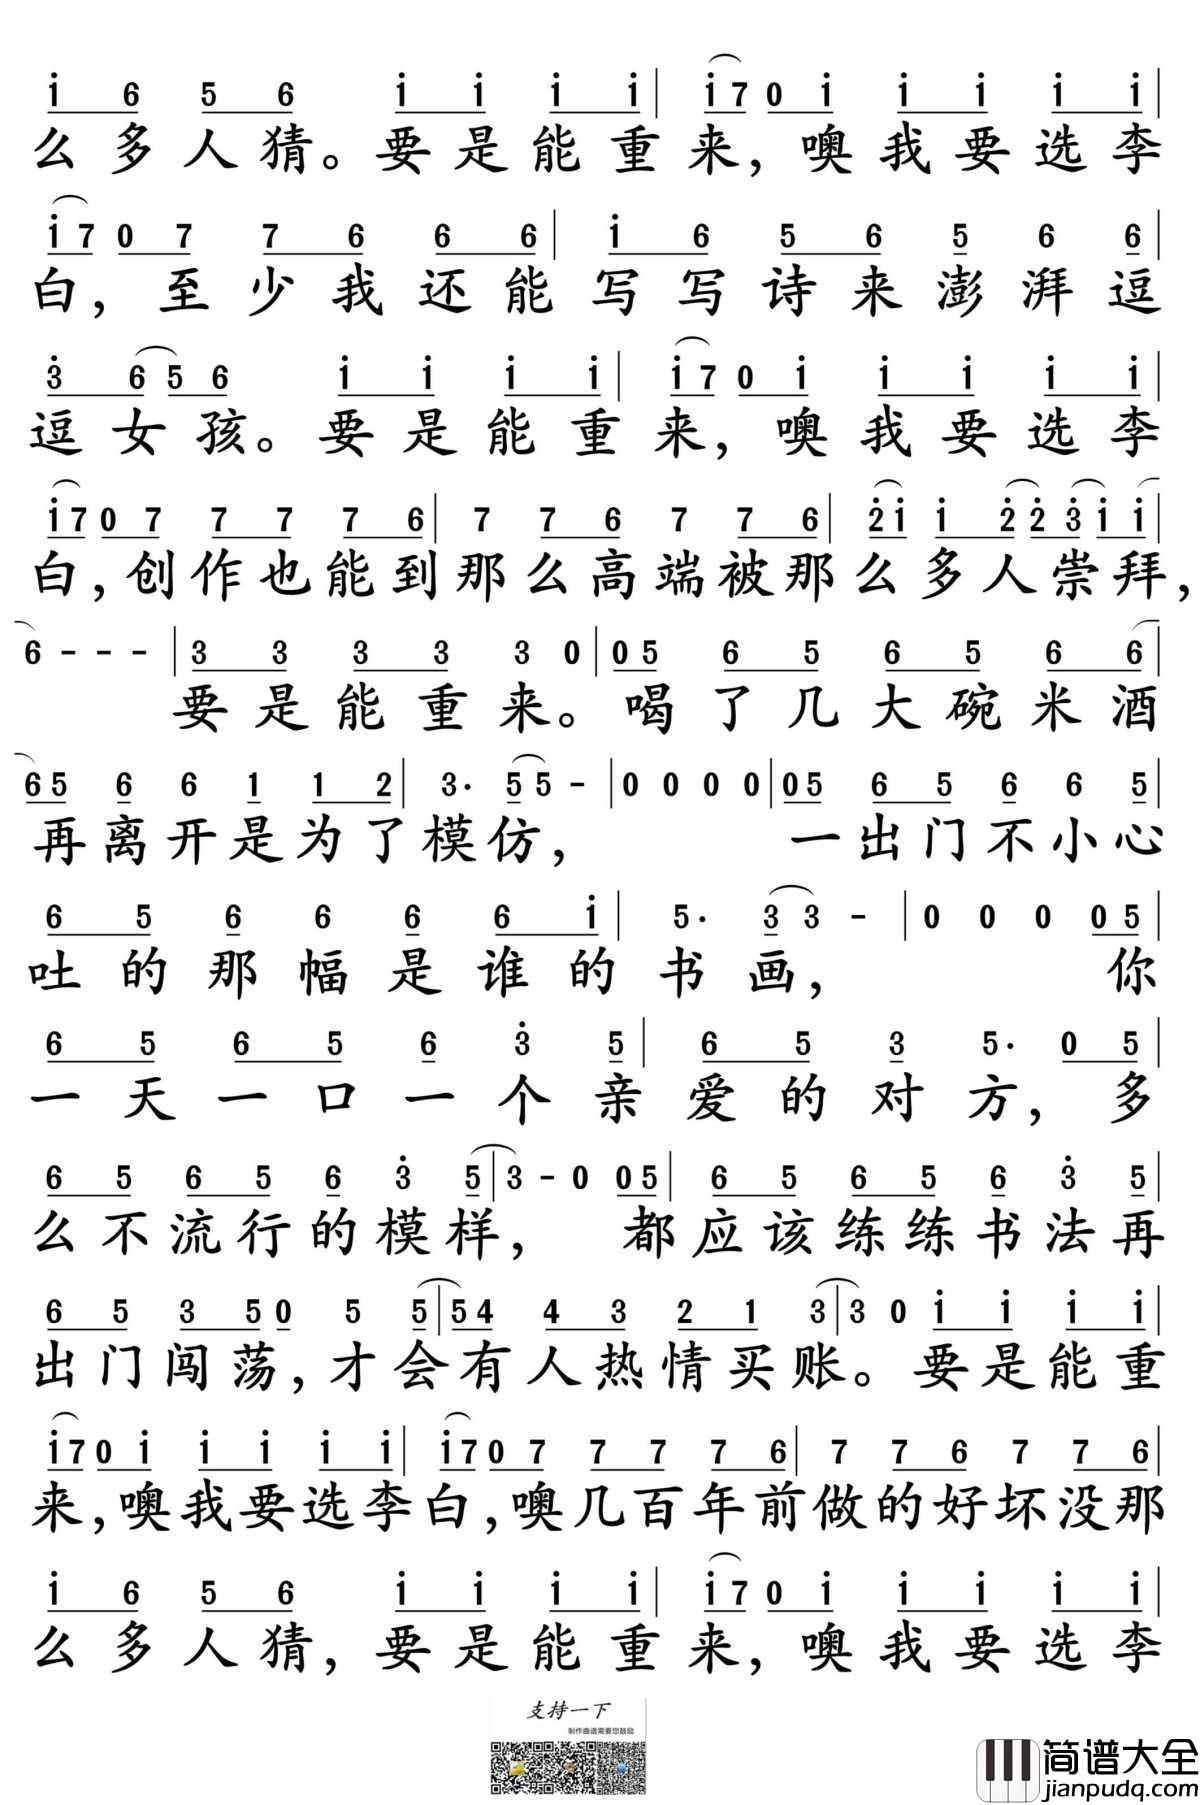 i 6 5 6 i i i i | i 7 0 i i i i i |
么多人猜。要是能重来,噢我要选李
i 7 0 7 7 6 6 6 | i 6 5 6 5 6 6 |
白,至少我还能写写诗来澎湃逗
3 6 5 6 i i i i | i 7 0 i i i i i |
逗女孩。要是能重来,噢我要选李
i 7 0 7 7 7 7 6 | 7 7 6 7 7 6 | 2 i i 2 2 3 i i |
白,创作也能到那么高端被那么多人崇拜,
6 - - - | 3 3 3 3 3 0 | 0 5 6 5 6 5 6 6 |
要是能重来。喝了几大碗米酒
6 5 6 6 1 1 2 | 3· 5 5 - | 0 0 0 0 | 0 5 6 5 6 6 5 |
再离开是为了模仿,一出门不小心
6 5 6 6 6 6 i | 5· 3 3 - | 0 0 0 0 5 |
吐的那幅是谁的书画,你
6 5 6 5 6 3 5 | 6 5 3 5· 0 5 |
一天一口一个亲爱的对方,多
6 5 6 5 6 3 5 | 3 - 0 0 5 | 6 5 6 5 6 3 5 |
么不流行的模样,都应该练练书法再
6 5 3 5 0 5 5 | 5 4 4 3 2 1 3 | 3 0 i i i i |
出门闯荡,才会有人热情买账。要是能重
i 7 0 i i i i i | i 7 0 7 7 7 7 6 | 7 7 6 7 7 6 |
来,噢我要选李白,噢几百年前做的好坏没那
i 6 5 6 i i i i | i 7 0 i i i i i |
么多人猜,要是能重来,噢我要选李
支持一下
制作曲谱需要您鼓励
简谱大全
jianpudq.com